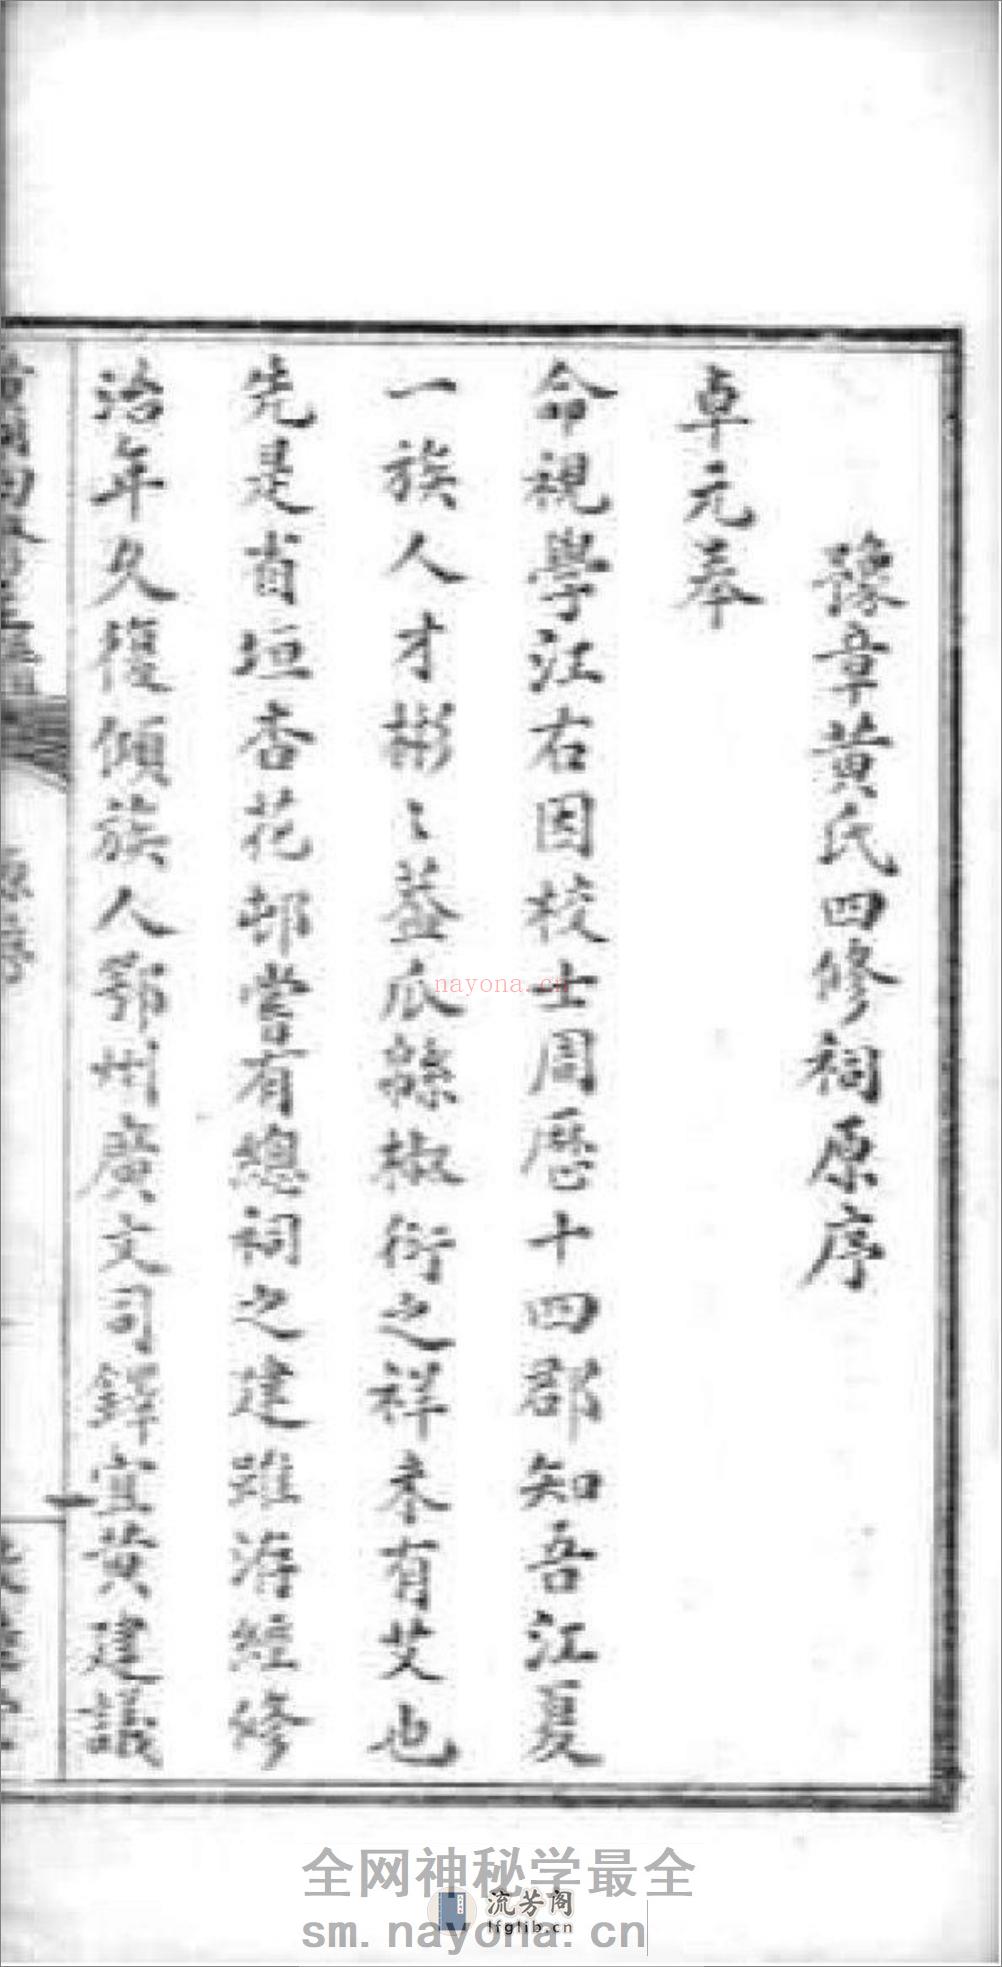 豫章黃氏四修祠原序
卓元奉
命視學江右因校士周歷十四郡知吾江夏
一族人才彬〻蓋瓜緜椒衍之祥未有艾也
先是省垣杏花邨嘗有總祠之建雖洊經修
治年久復傾族人鄂州廣文司鐸宜黃建議
nayona.cn
全网神秘学最全
流芳阁
lfglib.cn
sm.nayona.cn